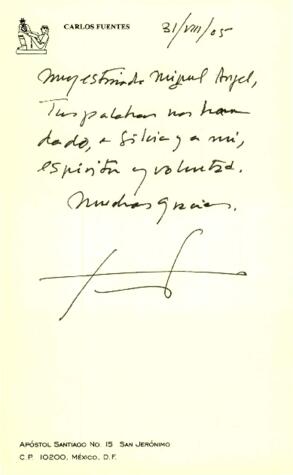 CARLOS FUENTES
31/VIII/05
Muy estimado Miguel Angel,
Tus palabras nos han
dado, a Silvia y a mí,
espíritu y voluntad.
Muchas gracias.
APÓSTOL SANTIAGO No. 15 SAN JERÓNIMO
C.P. 10200, MÉXICO, D.F.